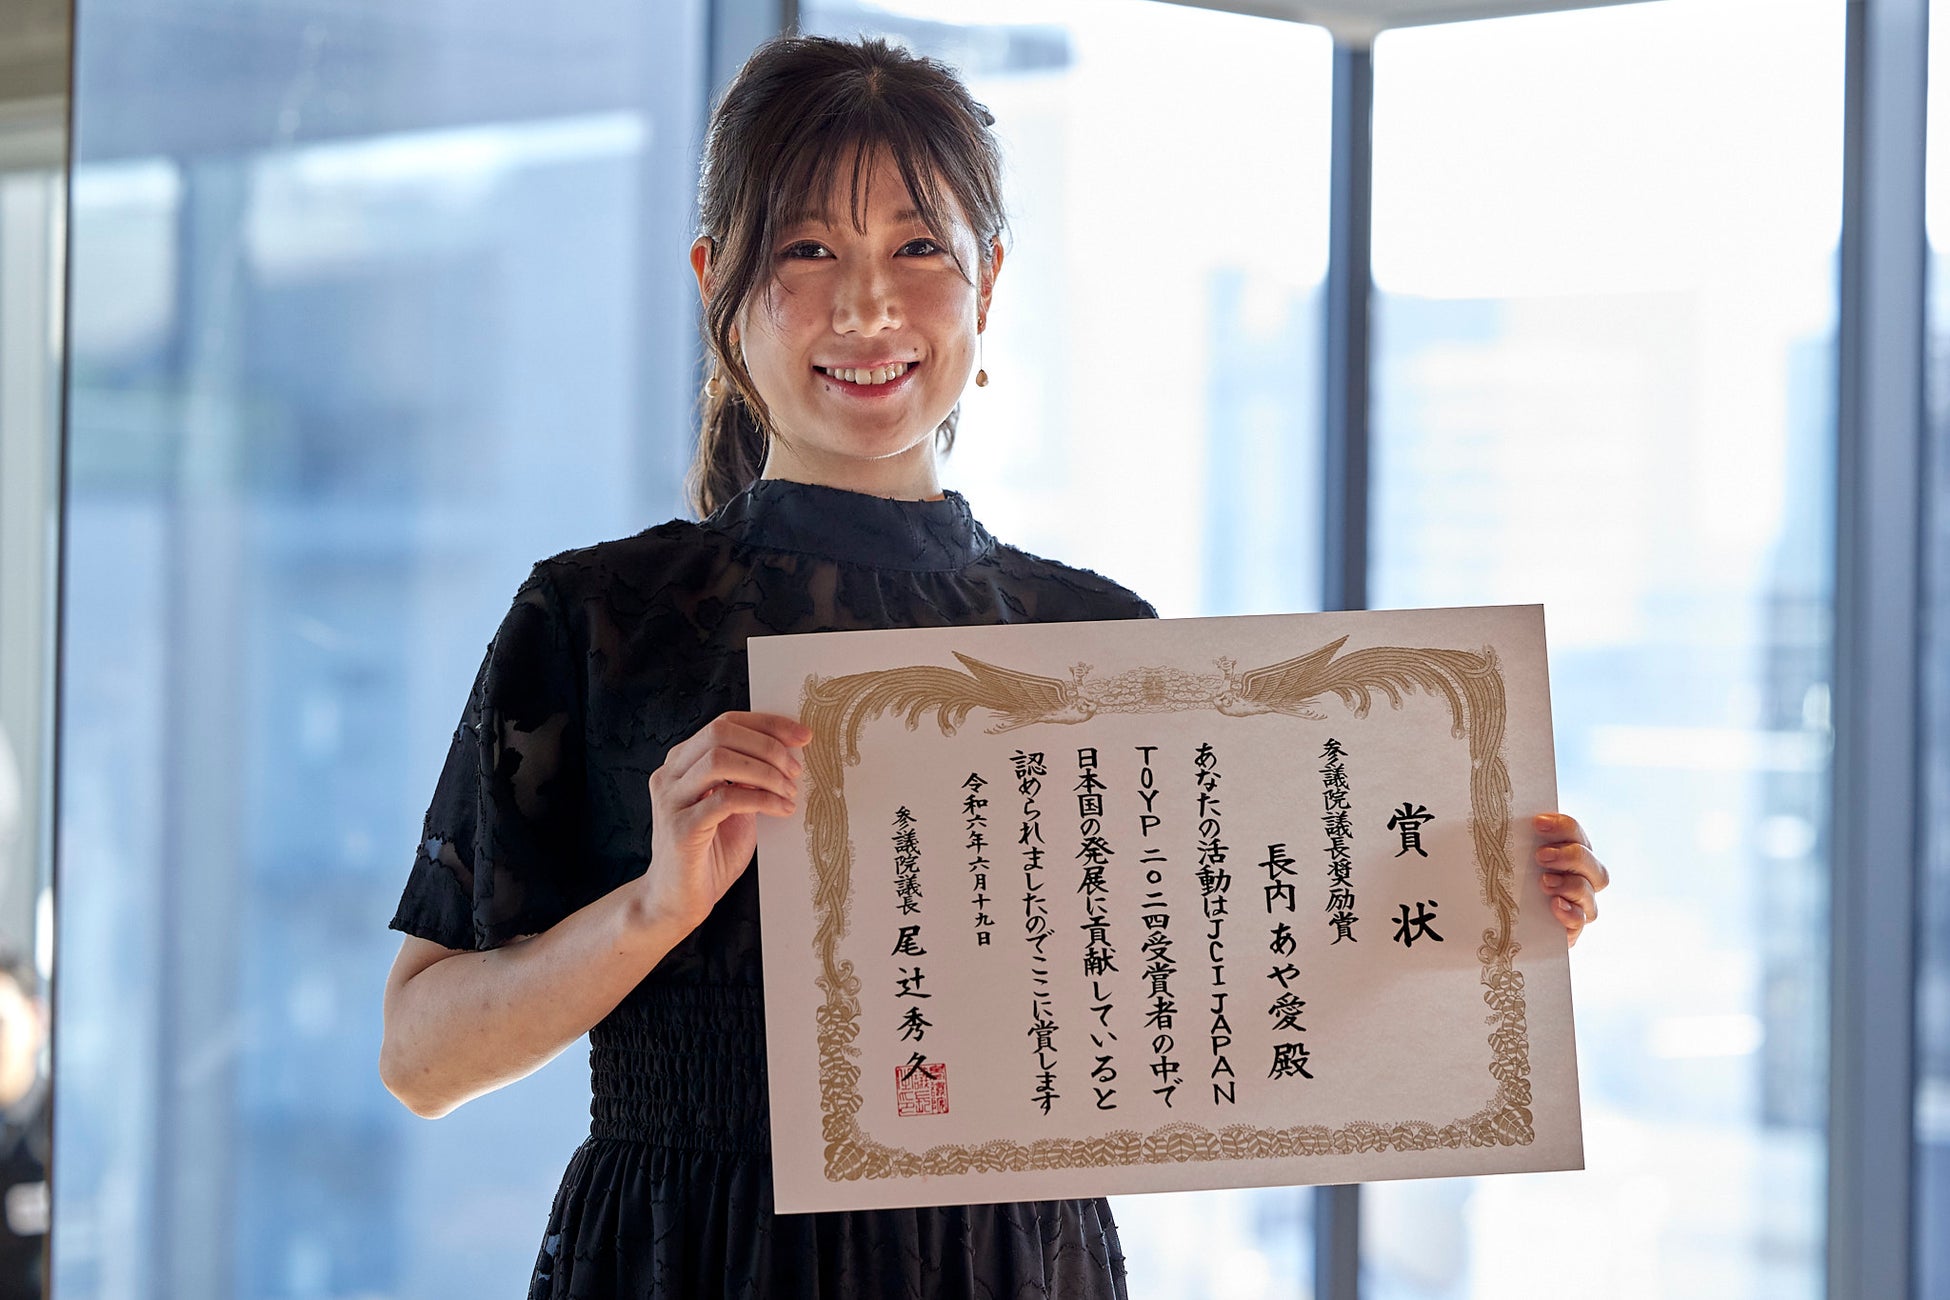 賞状
参議院議長奨励賞
長内あや愛殿
あなたの活動はJCIJAPAN
TOYP二〇二四受賞者の中で
日本国の発展に貢献していると
認められましたのでここに賞します
令和六年六月十九日
参議院議長 尾辻秀久